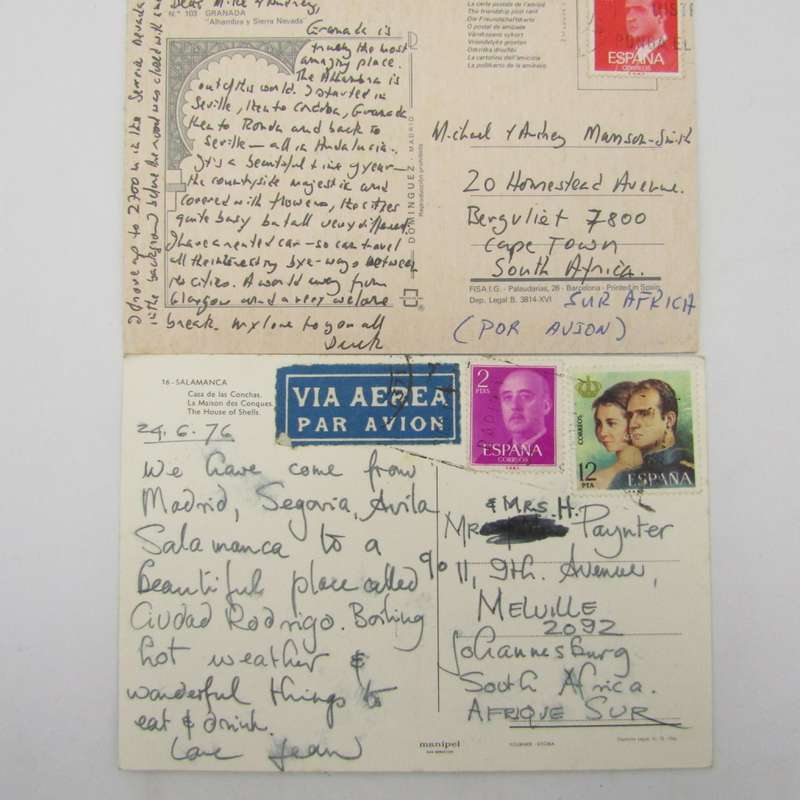 Dear Mike & Audrey,
Nº 103 GRANADA
"Alhambra y Sierra Nevada"
Granada is
truly the most
amazing place.
The Alhambra is
out of this world. I started in
Seville, then to Cordoba, Granada
then to Ronda and back to
Seville – all in Andalucia.
It's a beautiful time of year –
the countryside majestic and
covered with flowers, the cities
quite busy but all very different.
I have a rented car – so can travel
all the interesting bye-ways between
the cities. A world away from
Glasgow and a very welcome
break. My love to you all
Derek
I drove up to 2700 m in the Sierra Nevada
in the background before the road was closed with
DOMINGUEZ - MADRID
Reproducción prohibida
La carte postale de l'amitié
The friendship post card
Die Freundschaftskarte
O postal de amizade
Vänskapens vykort
Vriendelijke groeten
Det rakta drozhbi
La cartolina dell'amicizia
La polikarta de la amikeco
ESPAÑA
CORREOS
Michael & Audrey Manson-Smith
20 Homestead Avenue.
Bergvliet 7800
Cape Town
South Africa.
FISA I.G. - Palaudarias, 26 - Barcelona - Printed in Spain
Dep. Legal B. 3814-XVI
SUR AFRICA
(POR AVION)
16 - SALAMANCA
Casa de las Conchas.
La Maison des Conques.
The House of Shells.
VIA AEREA
PAR AVION
2
PTAS
ESPAÑA
CORREOS
CORREOS
12
PTA
ESPAÑA
24.6.76
We have come from
Madrid, Segovia, Avila
Salamanca to a
beautiful place called
Ciudad Rodrigo. Boiling
hot weather &
wonderful things to
eat & drink.
Love Jean
& MRS. H.
MR Paynter
c/o 11, 9th. Avenue,
MELVILLE
2092
Johannesburg
South Africa.
AFRIQUE SUR
manipel